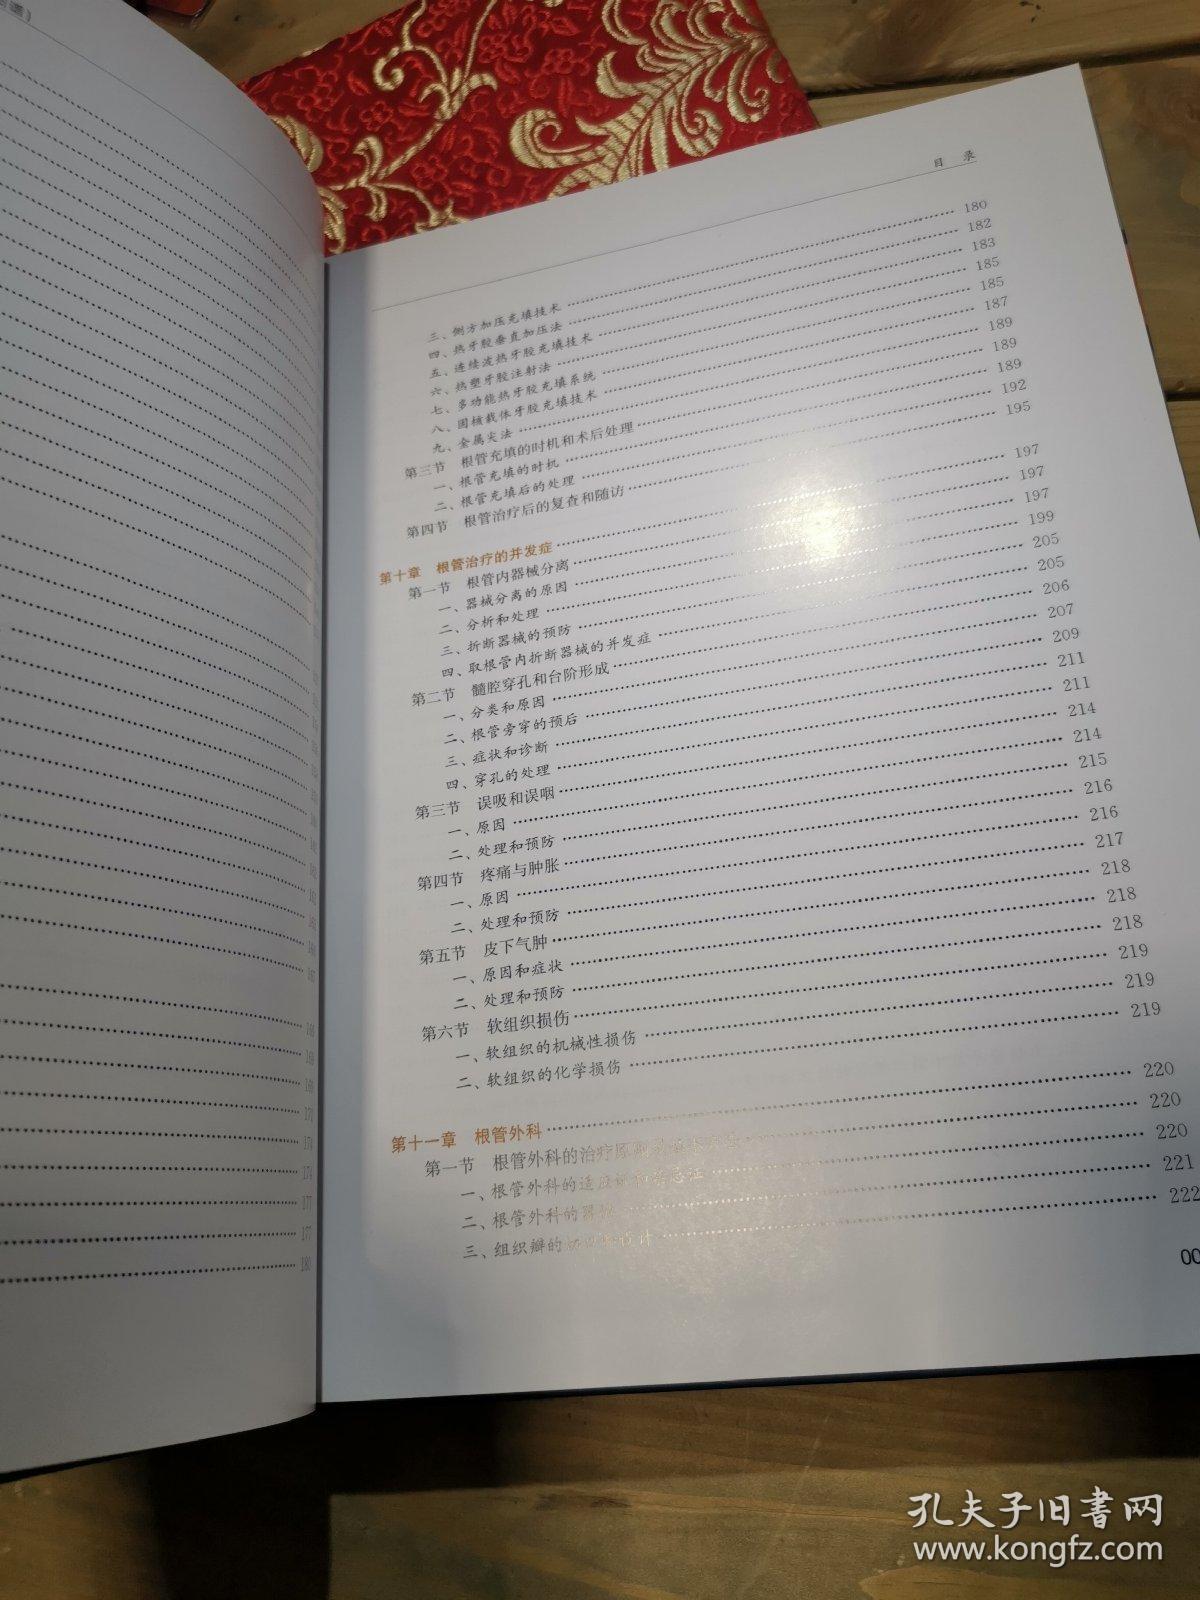 171
174
174
177
177
180
目 录
三、侧方加压充填技术 …… 180
四、热牙胶垂直加压法 …… 182
五、连续波热牙胶充填技术 …… 183
六、热塑牙胶注射法 …… 185
七、多功能热牙胶充填系统 …… 185
八、固核载体牙胶充填技术 …… 187
九、金属尖法 …… 189
第三节 根管充填的时机和术后处理 …… 189
一、根管充填的时机 …… 189
二、根管充填后的处理 …… 192
第四节 根管治疗后的复查和随访 …… 195
第十章 根管治疗的并发症 …… 197
第一节 根管内器械分离 …… 197
一、器械分离的原因 …… 197
二、分析和处理 …… 199
三、折断器械的预防 …… 205
四、取根管内折断器械的并发症 …… 205
第二节 髓腔穿孔和台阶形成 …… 206
一、分类和原因 …… 207
二、根管旁穿的预后 …… 209
三、症状和诊断 …… 211
四、穿孔的处理 …… 211
第三节 误吸和误咽 …… 214
一、原因 …… 214
二、处理和预防 …… 215
第四节 疼痛与肿胀 …… 216
一、原因 …… 216
二、处理和预防 …… 217
第五节 皮下气肿 …… 218
一、原因和症状 …… 218
二、处理和预防 …… 218
第六节 软组织损伤 …… 219
一、软组织的机械性损伤 …… 219
二、软组织的化学损伤 …… 219
第十一章 根管外科 …… 220
第一节 根管外科的治疗原则 …… 220
一、根管外科的适应证和禁忌证 …… 220
二、根管外科的器械 …… 221
三、组织瓣的切口和设计 …… 222
00
孔夫子旧书网
www.kongfz.com